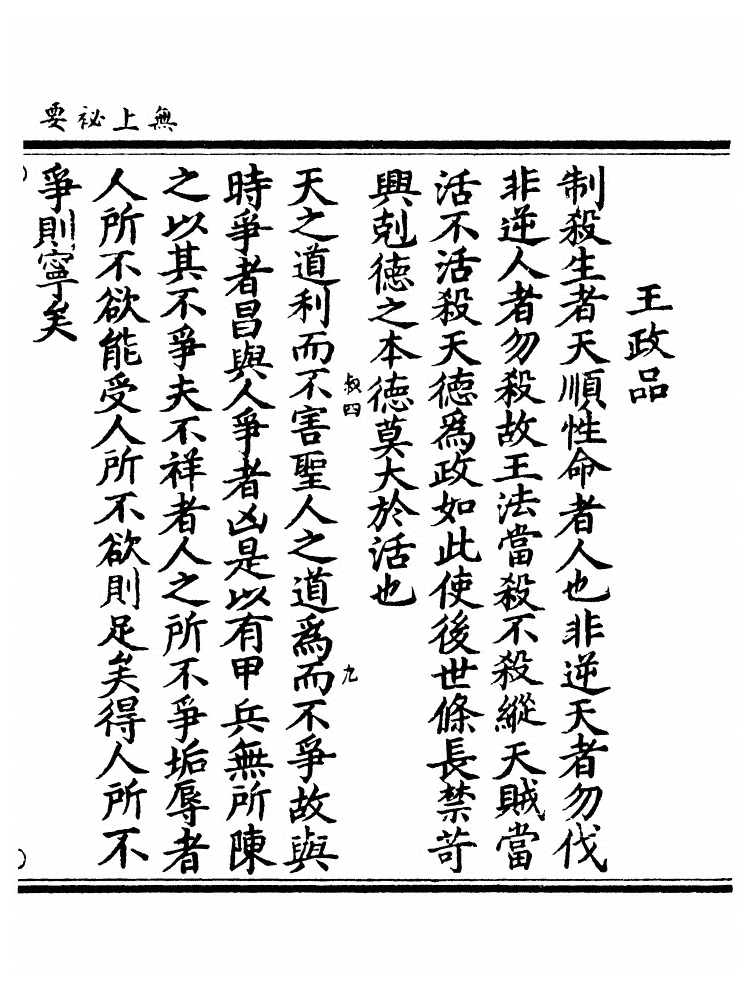 無上祕要
王政品
制殺生者天順性命者人也非逆天者勿伐
非逆人者勿殺故王法當殺不殺縱天賊當
活不活殺天德爲政如此使後世條長禁苛
興剋德之本德莫大於活也
叔四
九
天之道利而不害聖人之道爲而不爭故與
時爭者昌與人爭者凶是以有甲兵無所陳
之以其不爭夫不祥者人之所不爭垢辱者
人所不欲能受人所不欲則足矣得人所不
爭則寧矣